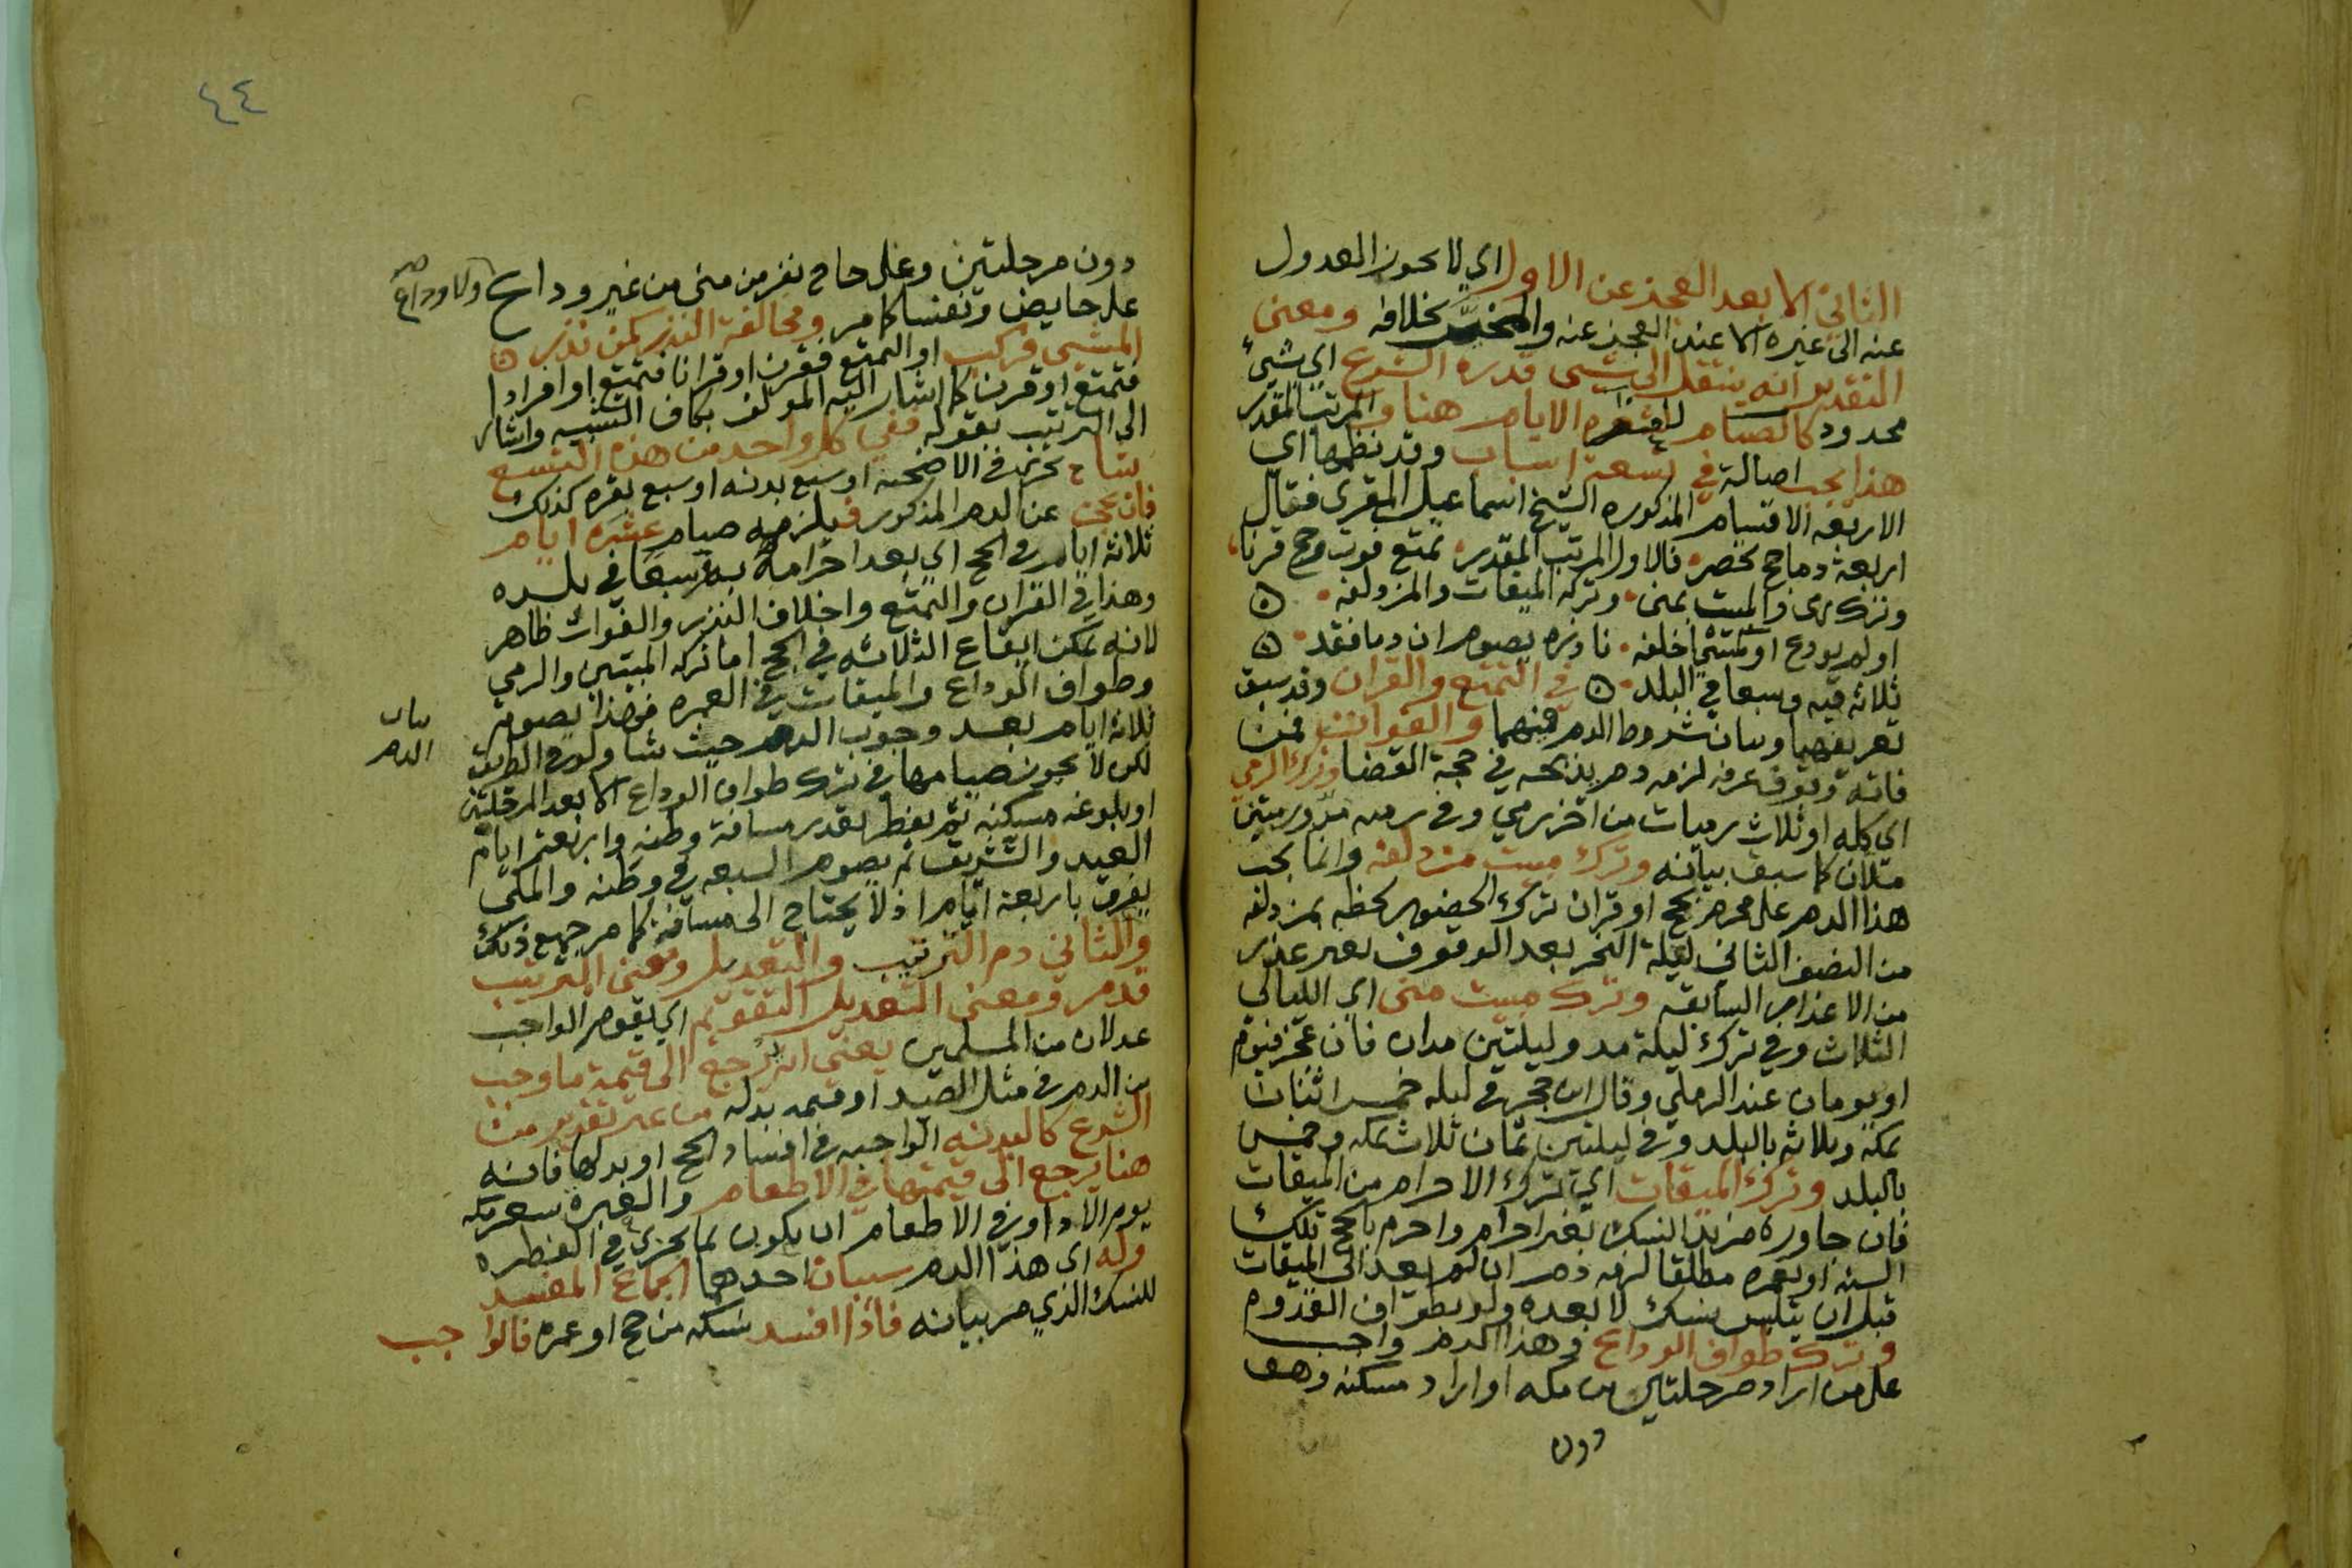 الثاني الا بعد العجز عن الاول اي لا يجوز العدول
عنه الى غيره الا عند العجز عنه والمخير بخلافه ومعنى
التقدير انه ينتقل الى شيى قدره الشرع اي شيئ
محدود كالصيام الايام هنا والمرتب المقدر
هذا يجب اصالة في تسعة اسباب وقد نظمها اي
الاربعه الاقسام المذكوره الشيخ اسماعيل المقري فقال
اربعة دماء حج تحصر فالاول المرتب المقدر تمتع فوت وحج قرنا
وترك رمى والمبيت بمنى وتركه الميقات والمزدلفه
او لم يودع او كمشي اخلفه ناذره يصوم ان دما فقد
ثلاثة فيه وسبعا في البلد في التمتع والقران وقد سبق
تعريفهما وبيان شروط الدم فيهما والفوات فمن
فاته وقوف عرفه لزمه دم يذبحه في حجة القضا وترك الرمي
اي كله او ثلاث رميات من اخر رمي وفي رميه مد ورميتين
مدان كما سبق بيانه وترك مبيت مزدلفه وانما يجب
هذا الدم على محرم بحج او قران ترك الحضور لحظه بمزدلفه
من النصف الثاني ليلة النحر بعد الوقوف بغير عذر
من الاعذار السابقه وترك مبيت منى اي الليالي
الثلاث وفي ترك ليلة مد وليلتين مدان فان عجز فيوم
او يومان عند الرملي وقال ابن حجر في ليله خمس اثنان
بمكة وثلاثه بالبلد وفي ليلتين ثمان ثلاث بمكه وخمس
بالبلد وترك الميقات اي ترك الاحرام من الميقات
فان جاوزه مريد النسك بغير احرام واحرم بالحج تلك
السنه او بعمره مطلقا لزمه دم ان لم يعد الى الميقات
قبل ان يتلبس بنسك لا بعده ولو بطواف القدوم
وترك طواف الوداع وهذا الدم واجب
على من اراد مرحلتين من مكه او اراد مسكنه وهو
دون
٤٤
دون مرحلتين وعلى حاج نفر من منى من غير وداع ولا وداع صح
على حايض ونفسا كما مر ومخالفة النذر كمن نذر
المشي فركب او التمتع فقرن او قرانا فتمتع او افرادا
فتمتع او قرن كما اشار اليه المولف بكاف التشبيه واشار
الى الترتيب بقوله ففي كل واحد من هذه التسع
شاه تجزي في الاضحيه او سبع بدنه او سبع بقره كذلك
فان عجز عن الدم المذكور فيلزمه صيام عشرة ايام
ثلاثه ايام في الحج اي بعد احرامه به وسبعا في بلده
وهذا في القران والتمتع واخلاف النذر والفوات ظاهر
لانه يمكن ايقاع الثلاثه في الحج اما ترك المبيتين والرمي
وطواف الوداع والميقات في العمره فهذا يصوم
ثلاثه ايام بعد وجوب الدم حيث شا ولو في الطريق
لكن لا يجوز صيامها في ترك طواف الوداع الا بعد المرحلتين
او بلوغه مسكنه ثم يفطر بقدر مسافة وطنه واربعة ايام
العيد والتشريق ثم يصوم السبعه في وطنه والمكي
يفرق باربعة ايام اذ لا يحتاج الى مسافة كما مر جميع ذلك
والثاني دم الترتيب والتعديل ومعنى الترتيب
قد مر ومعنى التعديل التقويم اي يقوم الواجب
عدلان من المسلمين يعني انه يرجع الى قيمة ما وجب
من الدم في مثل الصيد او قيمه بدله من غير تقدير من
الشرع كالبدنه الواجبه في افساد الحج او بدلها فانه
هنا يرجع الى قيمتها في الاطعام والعبرة بسعر مكه
يوم الادا وفي الاطعام ان يكون بما يجزي في الفطره
وله اي هذا الدم سببان احدهما الجماع المفسد
للنسك الذي مر بيانه فاذا افسد نسكه من حج او عمرة فالواجب
بيان
الدم